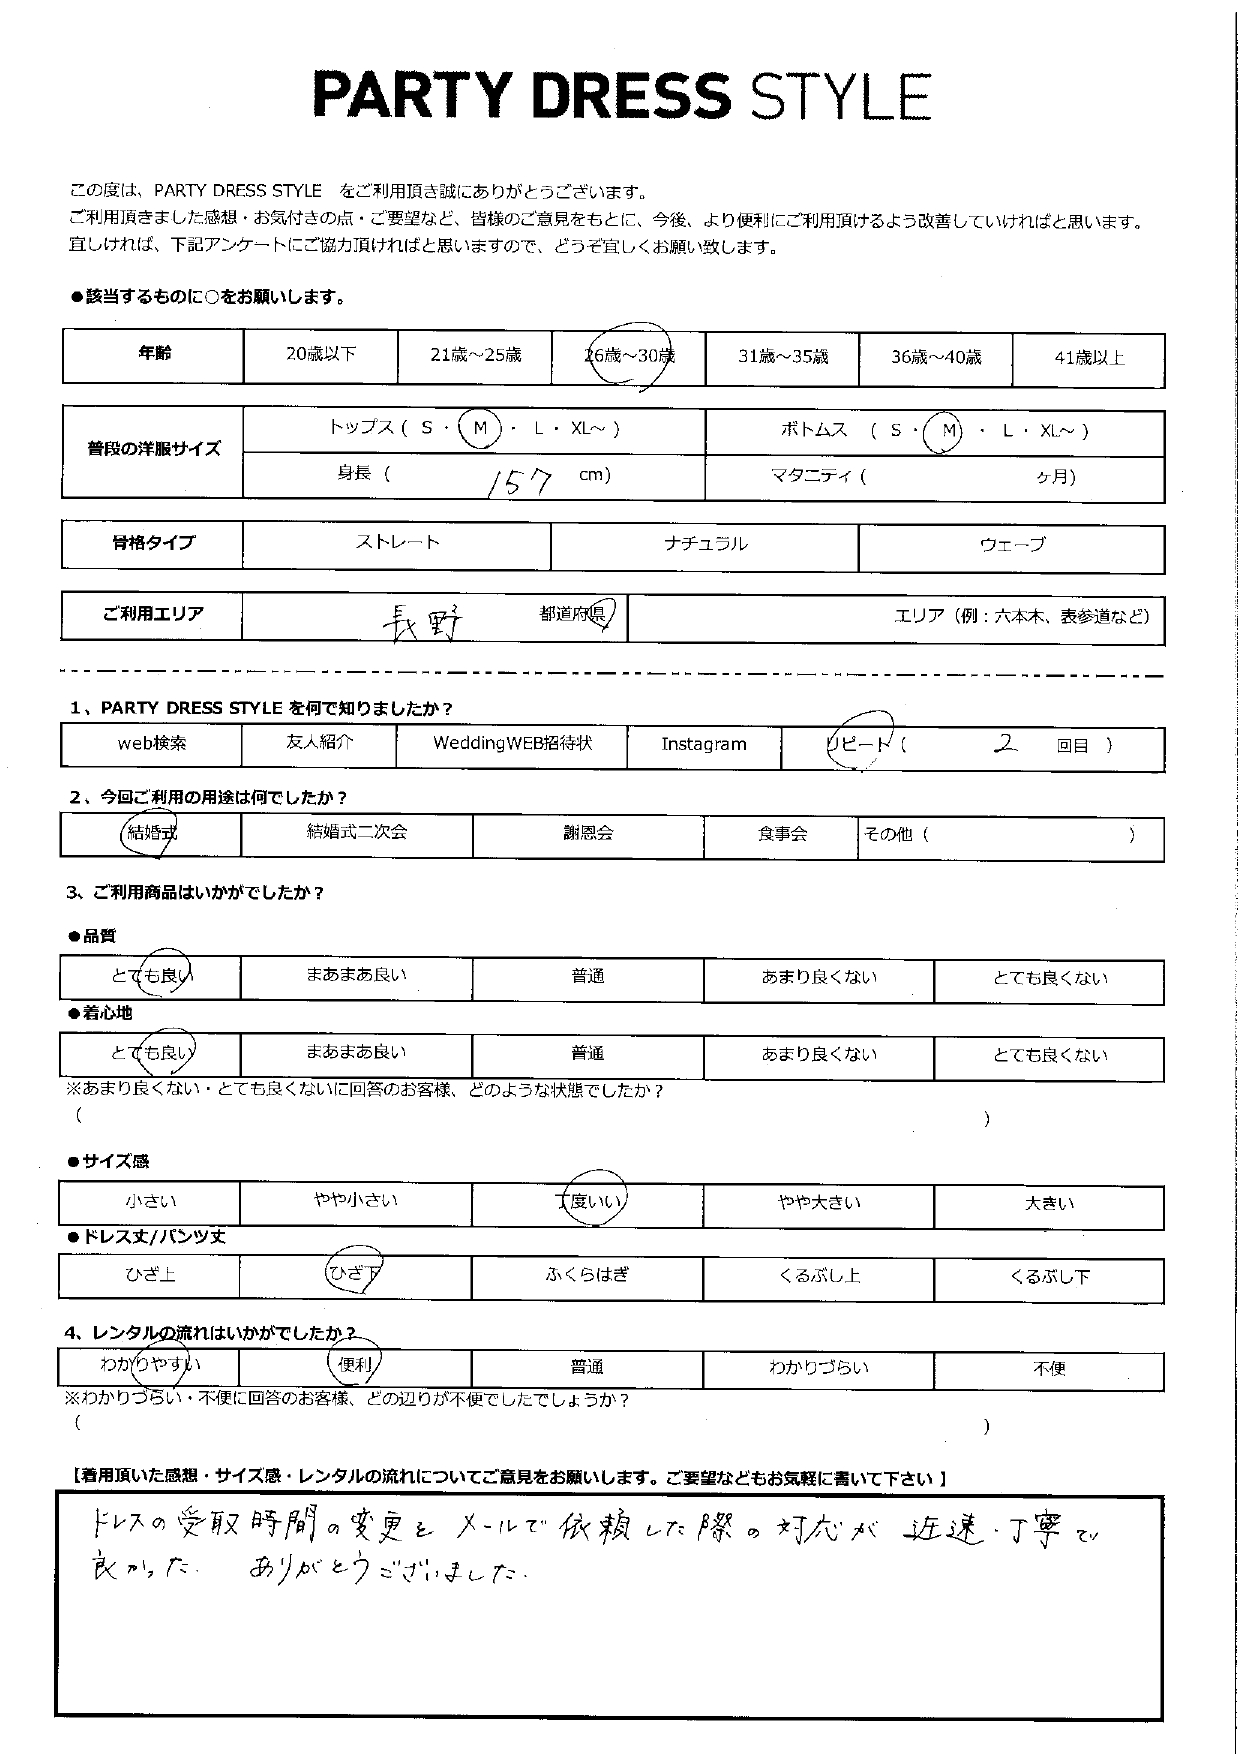 PARTY DRESS STYLE
この度は、PARTY DRESS STYLE　をご利用頂き誠にありがとうございます。
ご利用頂きました感想・お気付きの点・ご要望など、皆様のご意見をもとに、今後、より便利にご利用頂けるよう改善していければと思います。
宜しければ、下記アンケートにご協力頂ければと思いますので、どうぞ宜しくお願い致します。
●該当するものに○をお願いします。
年齢 20歳以下 21歳～25歳 26歳～30歳 31歳～35歳 36歳～40歳 41歳以上
普段の洋服サイズ トップス ( S ・ M ・ L ・ XL～ ) ボトムス ( S ・ M ・ L ・ XL～ )
身長 ( 157 cm) マタニティ ( ヶ月)
骨格タイプ ストレート ナチュラル ウェーブ
ご利用エリア 長野 都道府県 エリア（例：六本木、表参道など）
1、PARTY DRESS STYLE を何で知りましたか？
web検索 友人紹介 WeddingWEB招待状 Instagram リピート ( 2 回目 )
2、今回ご利用の用途は何でしたか？
結婚式 結婚式二次会 謝恩会 食事会 その他 ( )
3、ご利用商品はいかがでしたか？
●品質
とても良い まあまあ良い 普通 あまり良くない とても良くない
●着心地
とても良い まあまあ良い 普通 あまり良くない とても良くない
※あまり良くない・とても良くないに回答のお客様、どのような状態でしたか？
( )
●サイズ感
小さい やや小さい 丁度いい やや大きい 大きい
●ドレス丈/パンツ丈
ひざ上 ひざ下 ふくらはぎ くるぶし上 くるぶし下
4、レンタルの流れはいかがでしたか？
わかりやすい 便利 普通 わかりづらい 不便
※わかりづらい・不便に回答のお客様、どの辺りが不便でしたでしょうか？
( )
【着用頂いた感想・サイズ感・レンタルの流れについてご意見をお願いします。ご要望などもお気軽に書いて下さい 】
ドレスの受取時間の変更をメールで依頼した際の対応が 迅速・丁寧で
良かった. ありがとうございました.